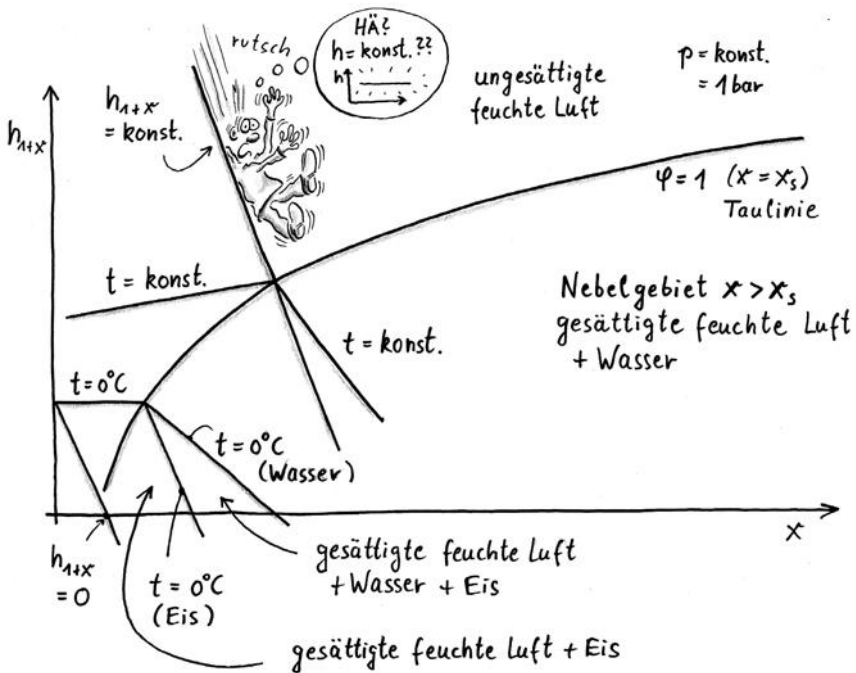 rutsch
HÄ?
h = konst.??
h
ungesättigte
feuchte Luft
p = konst.
= 1 bar
h₁₊ₓ
h₁₊ₓ
= konst.
φ = 1 (x = xₛ)
Taulinie
t = konst.
Nebelgebiet x > xₛ
gesättigte feuchte Luft
+ Wasser
t = konst.
t = 0°C
t = 0°C
(Wasser)
x
h₁₊ₓ
= 0
t = 0°C
(Eis)
gesättigte feuchte Luft
+ Wasser + Eis
gesättigte feuchte Luft + Eis